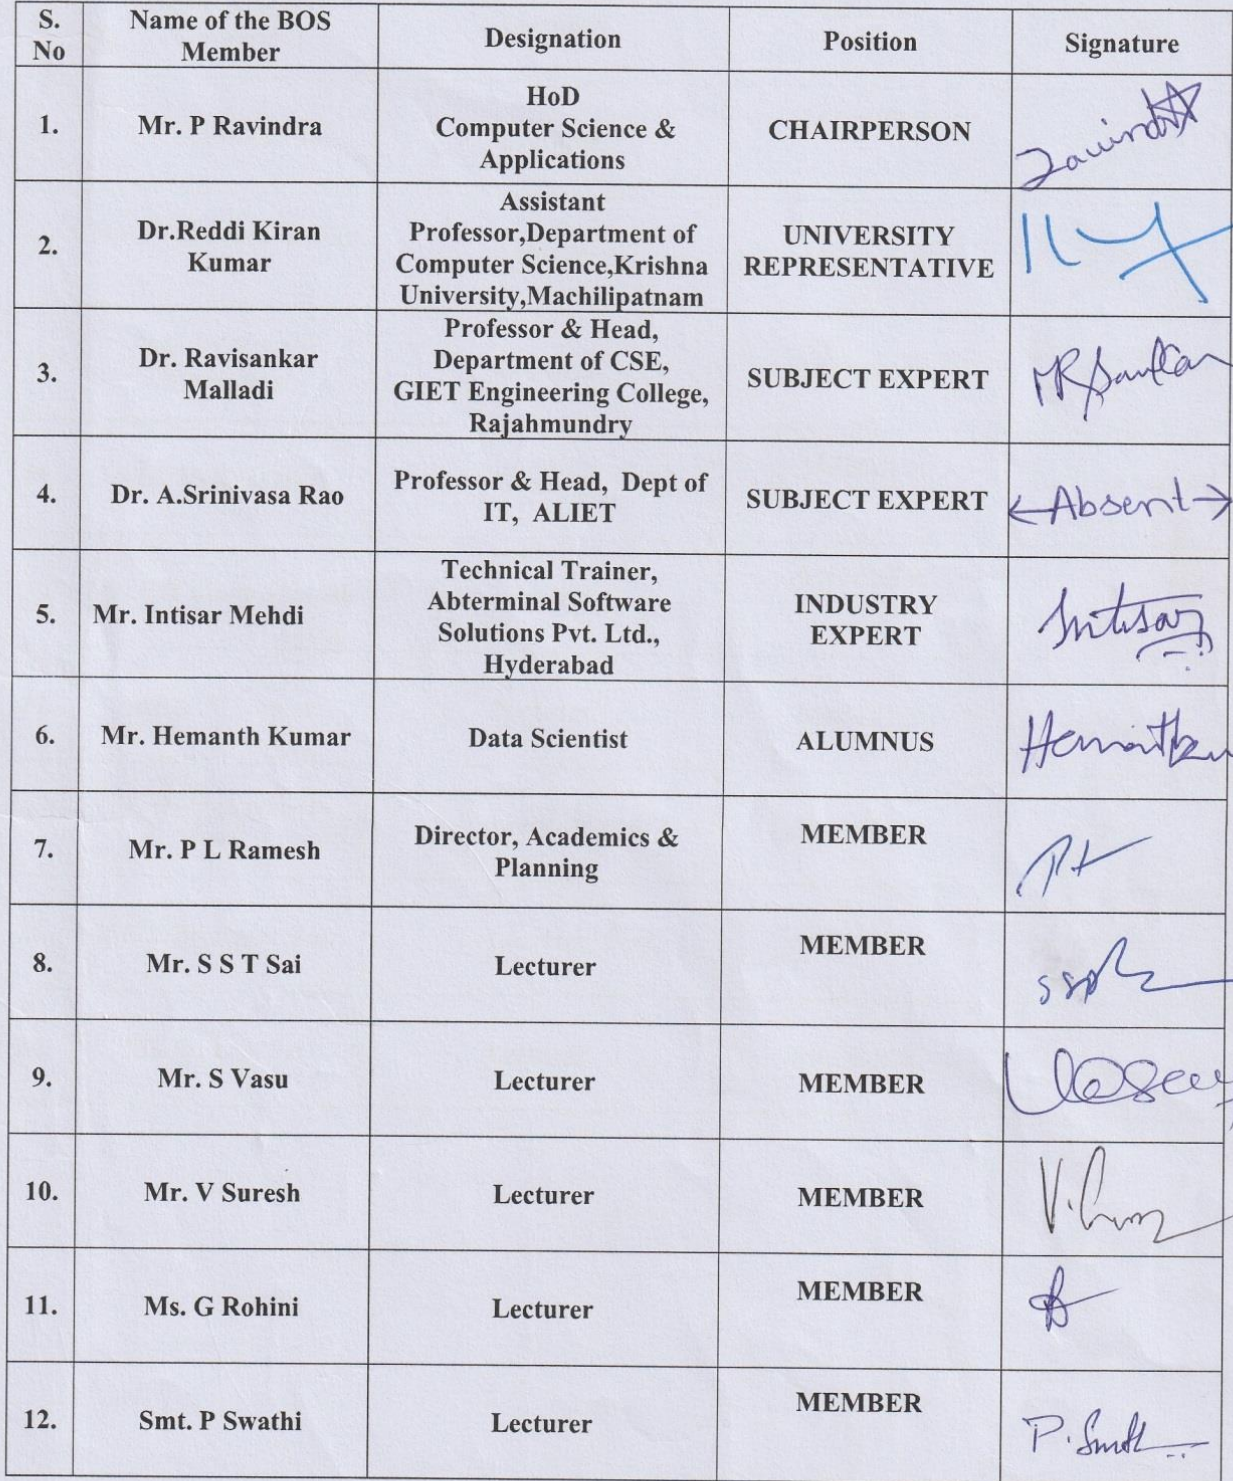 S. No
Name of the BOS
Member
Designation
Position
Signature
1.
Mr. P Ravindra
HoD
Computer Science &
Applications
CHAIRPERSON
2.
Dr.Reddi Kiran
Kumar
Assistant
Professor,Department of
Computer Science,Krishna
University,Machilipatnam
UNIVERSITY
REPRESENTATIVE
3.
Dr. Ravisankar
Malladi
Professor & Head,
Department of CSE,
GIET Engineering College,
Rajahmundry
SUBJECT EXPERT
4.
Dr. A.Srinivasa Rao
Professor & Head, Dept of
IT, ALIET
SUBJECT EXPERT
←Absent→
5.
Mr. Intisar Mehdi
Technical Trainer,
Abterminal Software
Solutions Pvt. Ltd.,
Hyderabad
INDUSTRY
EXPERT
6.
Mr. Hemanth Kumar
Data Scientist
ALUMNUS
7.
Mr. P L Ramesh
Director, Academics &
Planning
MEMBER
8.
Mr. S S T Sai
Lecturer
MEMBER
9.
Mr. S Vasu
Lecturer
MEMBER
10.
Mr. V Suresh
Lecturer
MEMBER
11.
Ms. G Rohini
Lecturer
MEMBER
12.
Smt. P Swathi
Lecturer
MEMBER